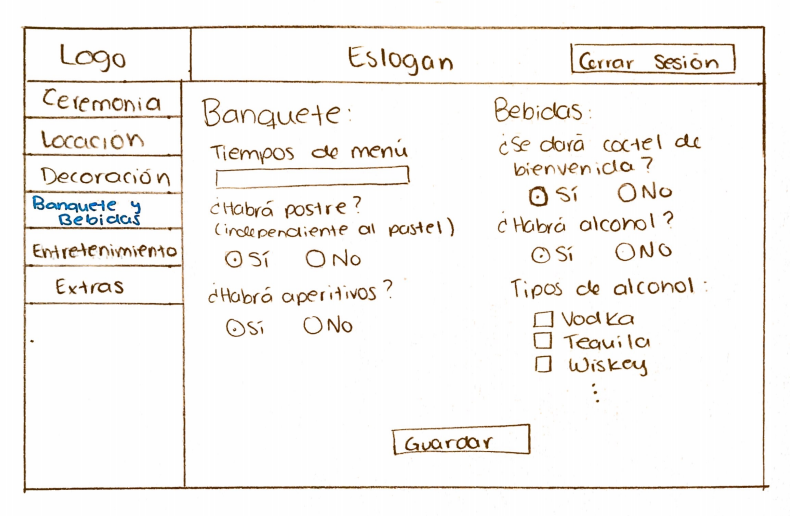 Logo
Eslogan
Cerrar Sesión
Ceremonia
Locación
Decoración
Banquete y
Bebidas
Entretenimiento
Extras
Banquete:
Tiempos de menú
¿Habrá postre?
(independiente al pastel)
Sí No
¿Habrá aperitivos?
Sí No
Bebidas:
¿Se dará coctel de
bienvenida?
Sí No
¿Habrá alcohol?
Sí No
Tipos de alcohol:
Vodka
Tequila
Wiskey
⋮
Guardar